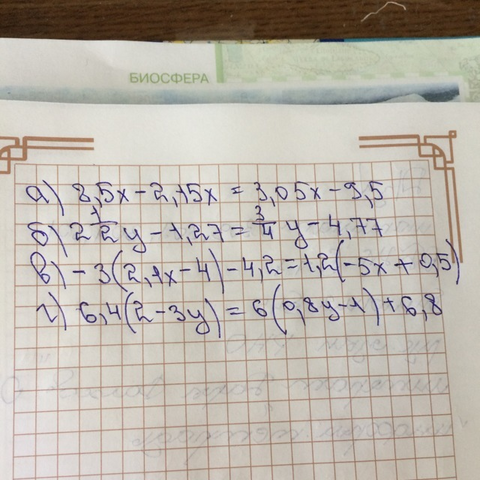 БИОСФЕРА
а) 8,5x - 2,15x = 3,05x - 9,5
б) 2 1/2 y - 1,27 = 3/4 y - 4,77
в) - 3(2,1x - 4) - 4,2 = 1,2(-5x + 0,5)
г) 6,4(2 - 3y) = 6(0,8y - 1) + 6,8